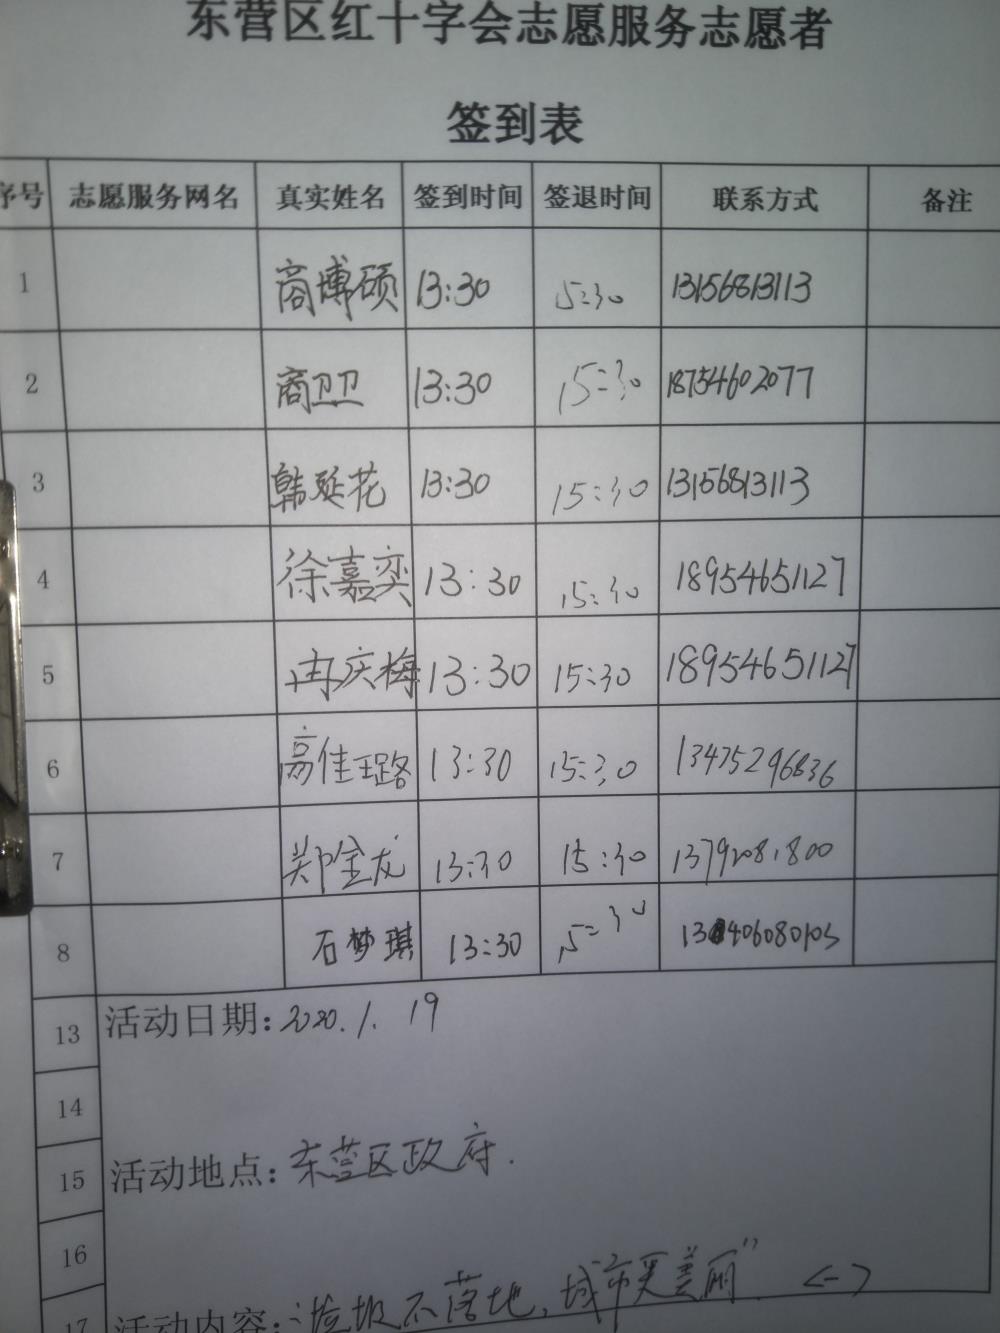 东营区红十字会志愿服务志愿者
签到表
序号 志愿服务网名 真实姓名 签到时间 签退时间 联系方式 备注
1 商博硕 13:30 15:30 13156813113
2 商卫卫 13:30 15:30 18754602077
3 韩延花 13:30 15:30 13156813113
4 徐嘉奕 13:30 15:30 18954651127
5 冉庆梅 13:30 15:30 18954651127
6 高佳璐 13:30 15:30 13475296836
7 郑金龙 13:30 15:30 13792081800
8 石梦琪 13:30 15:30
13 活动日期:2020.1.19
14
15 活动地点:东营区政府.
16
17 活动内容:垃圾不落地,城市更美丽” (一)